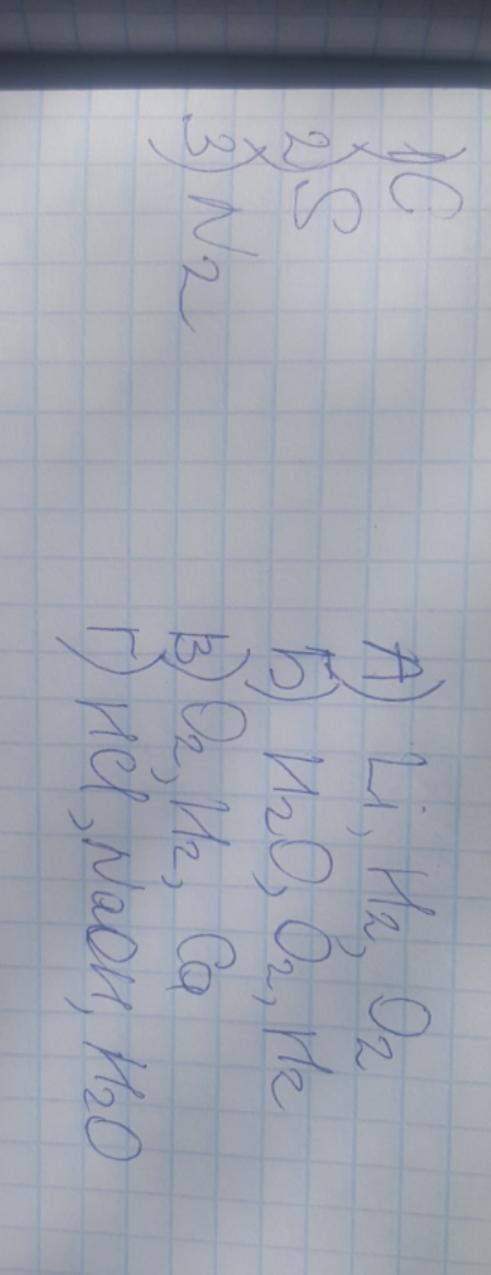 1) C
2) S
3) N2
А) Li, H2, O2
Б) H2O, O2, H2
В) O2, H2, Ca
Г) HCl, NaOH, H2O